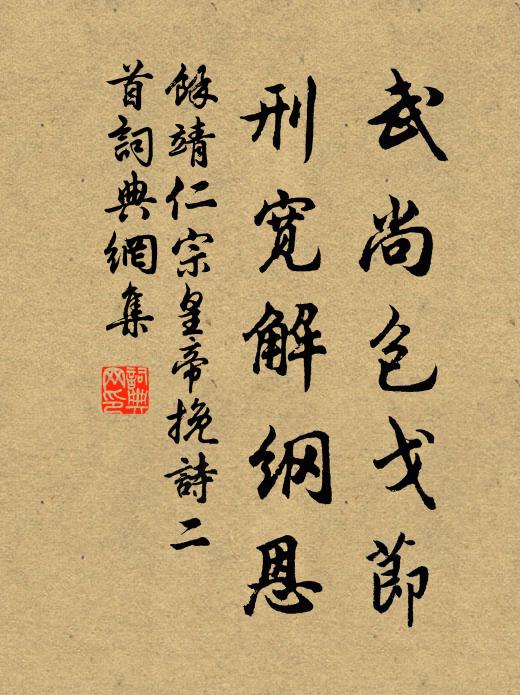 武尚包戈節
刑寬解網恩
餘靖仁宗皇帝挽詩二
首詞典網集
詞典網印